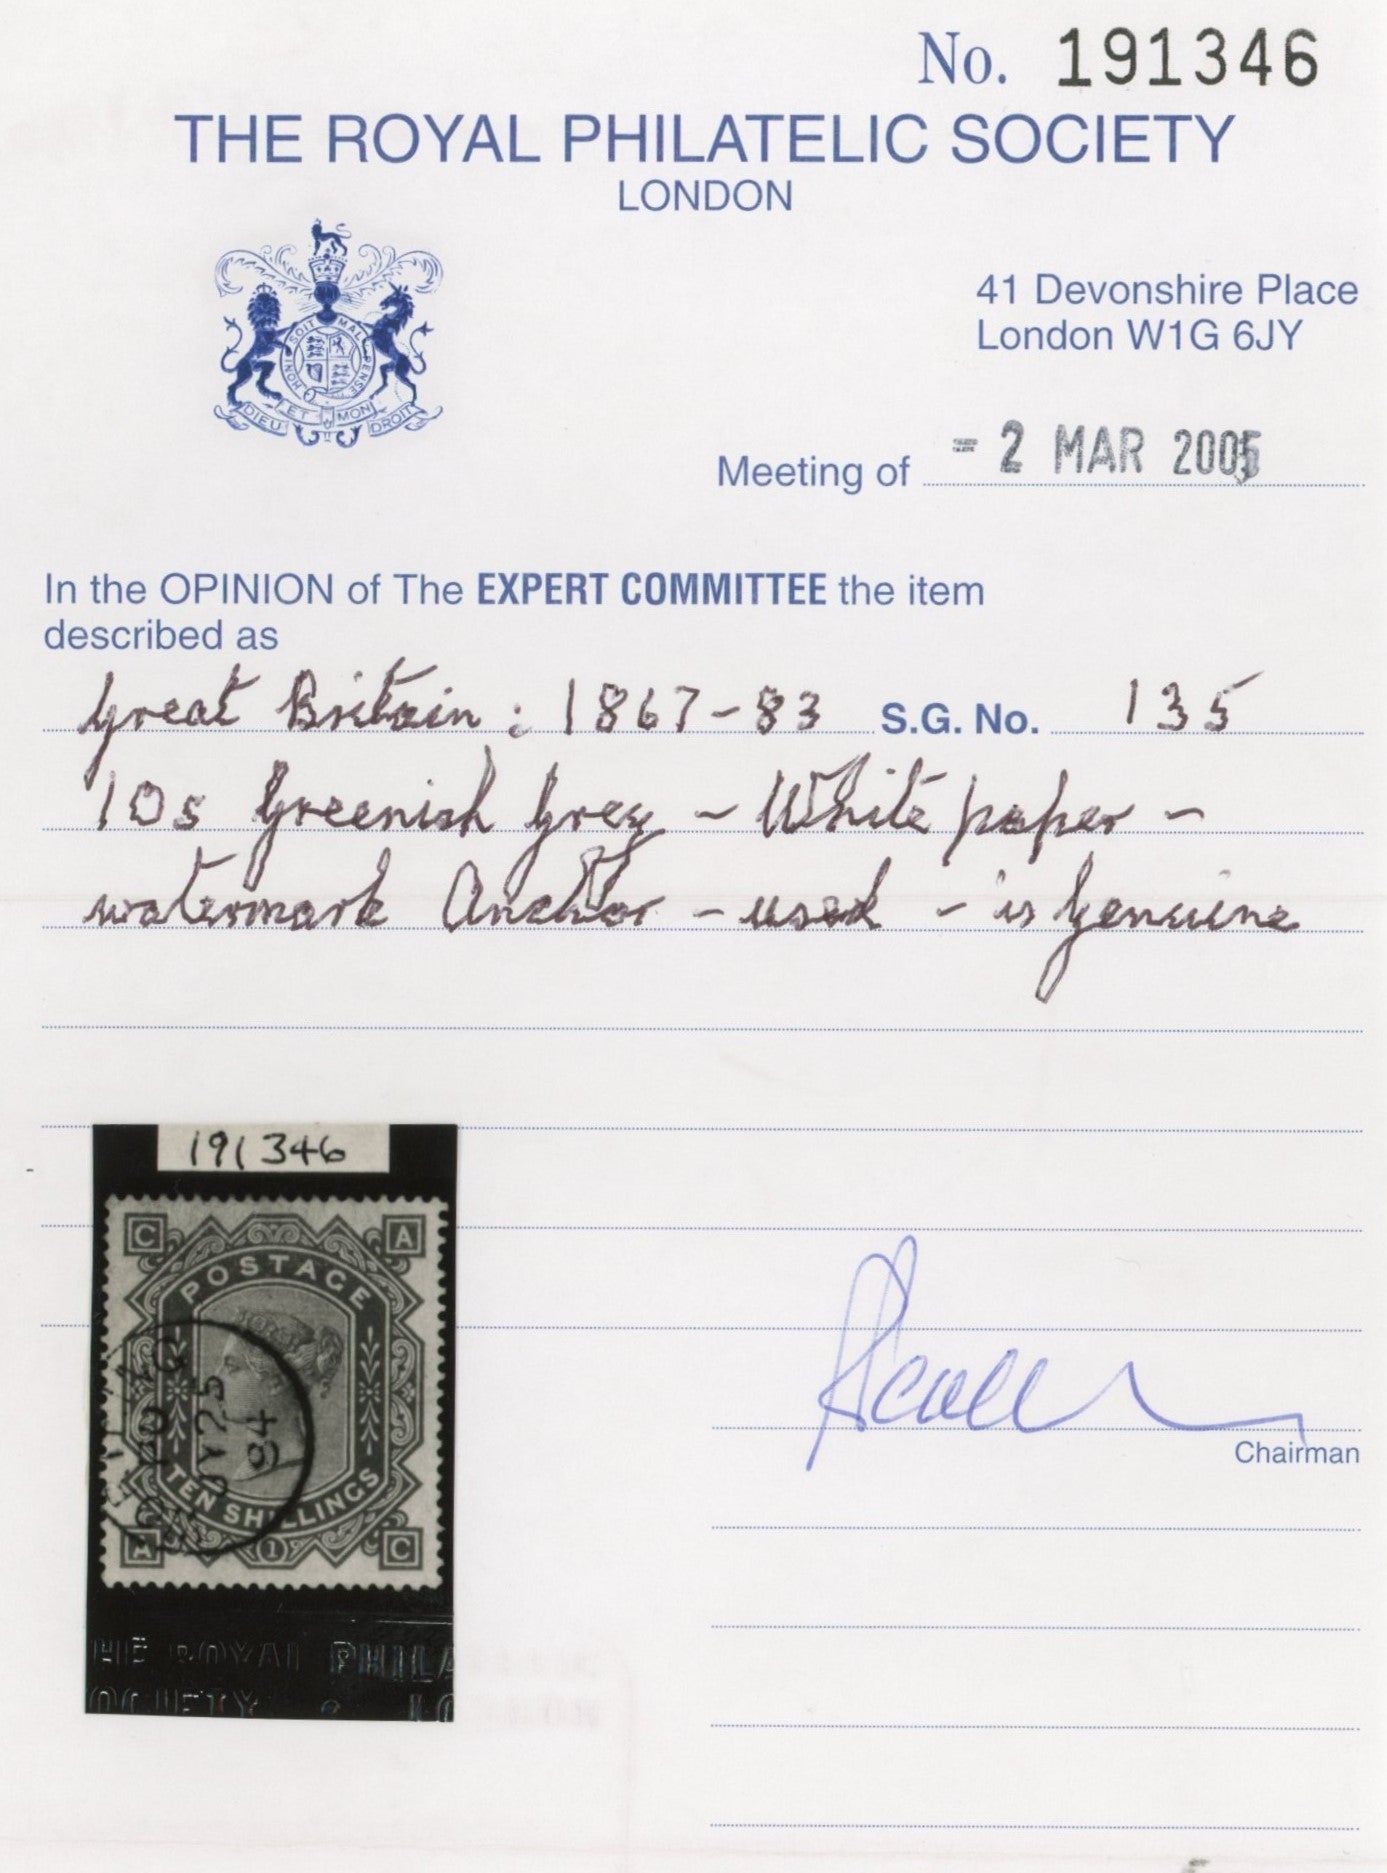 No. 191346
THE ROYAL PHILATELIC SOCIETY
LONDON
41 Devonshire Place
London W1G 6JY
SOIT MAL
HONI PENSE
DIEU ET MON DROIT
Meeting of = 2 MAR 2005
In the OPINION of The EXPERT COMMITTEE the item
described as
Great Britain: 1867-83 S.G. No. 135
10s Greenish Grey - White paper -
watermark Anchor - used - is Genuine
191346
C A
POSTAGE
JY 25
94
TEN SHILLINGS
A 1 C
HE ROYAL PHILA
OCIETY LO
Chairman